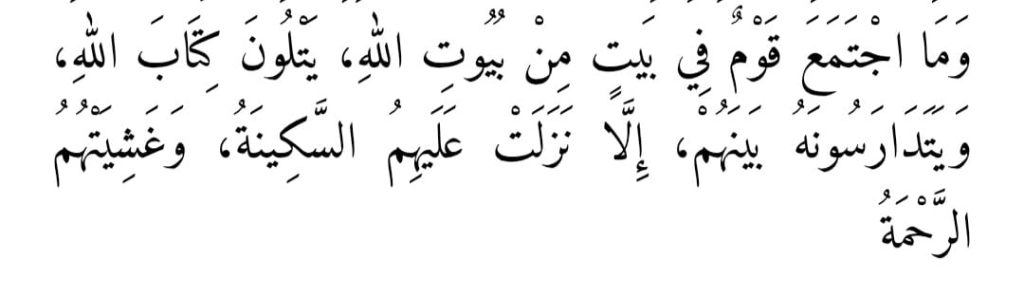 وَمَا اجْتَمَعَ قَوْمٌ فِي بَيتٍ مِنْ بُيُوتِ اللهِ، يَتْلُونَ كِتَابَ اللهِ،
وَيَتَدَارَسُونَهُ بَينَهُمْ، إِلَّا نَزَلَتْ عَلَيهِمُ السَّكِينَةُ، وَغَشِيَتْهُمُ
الرَّحْمَةُ